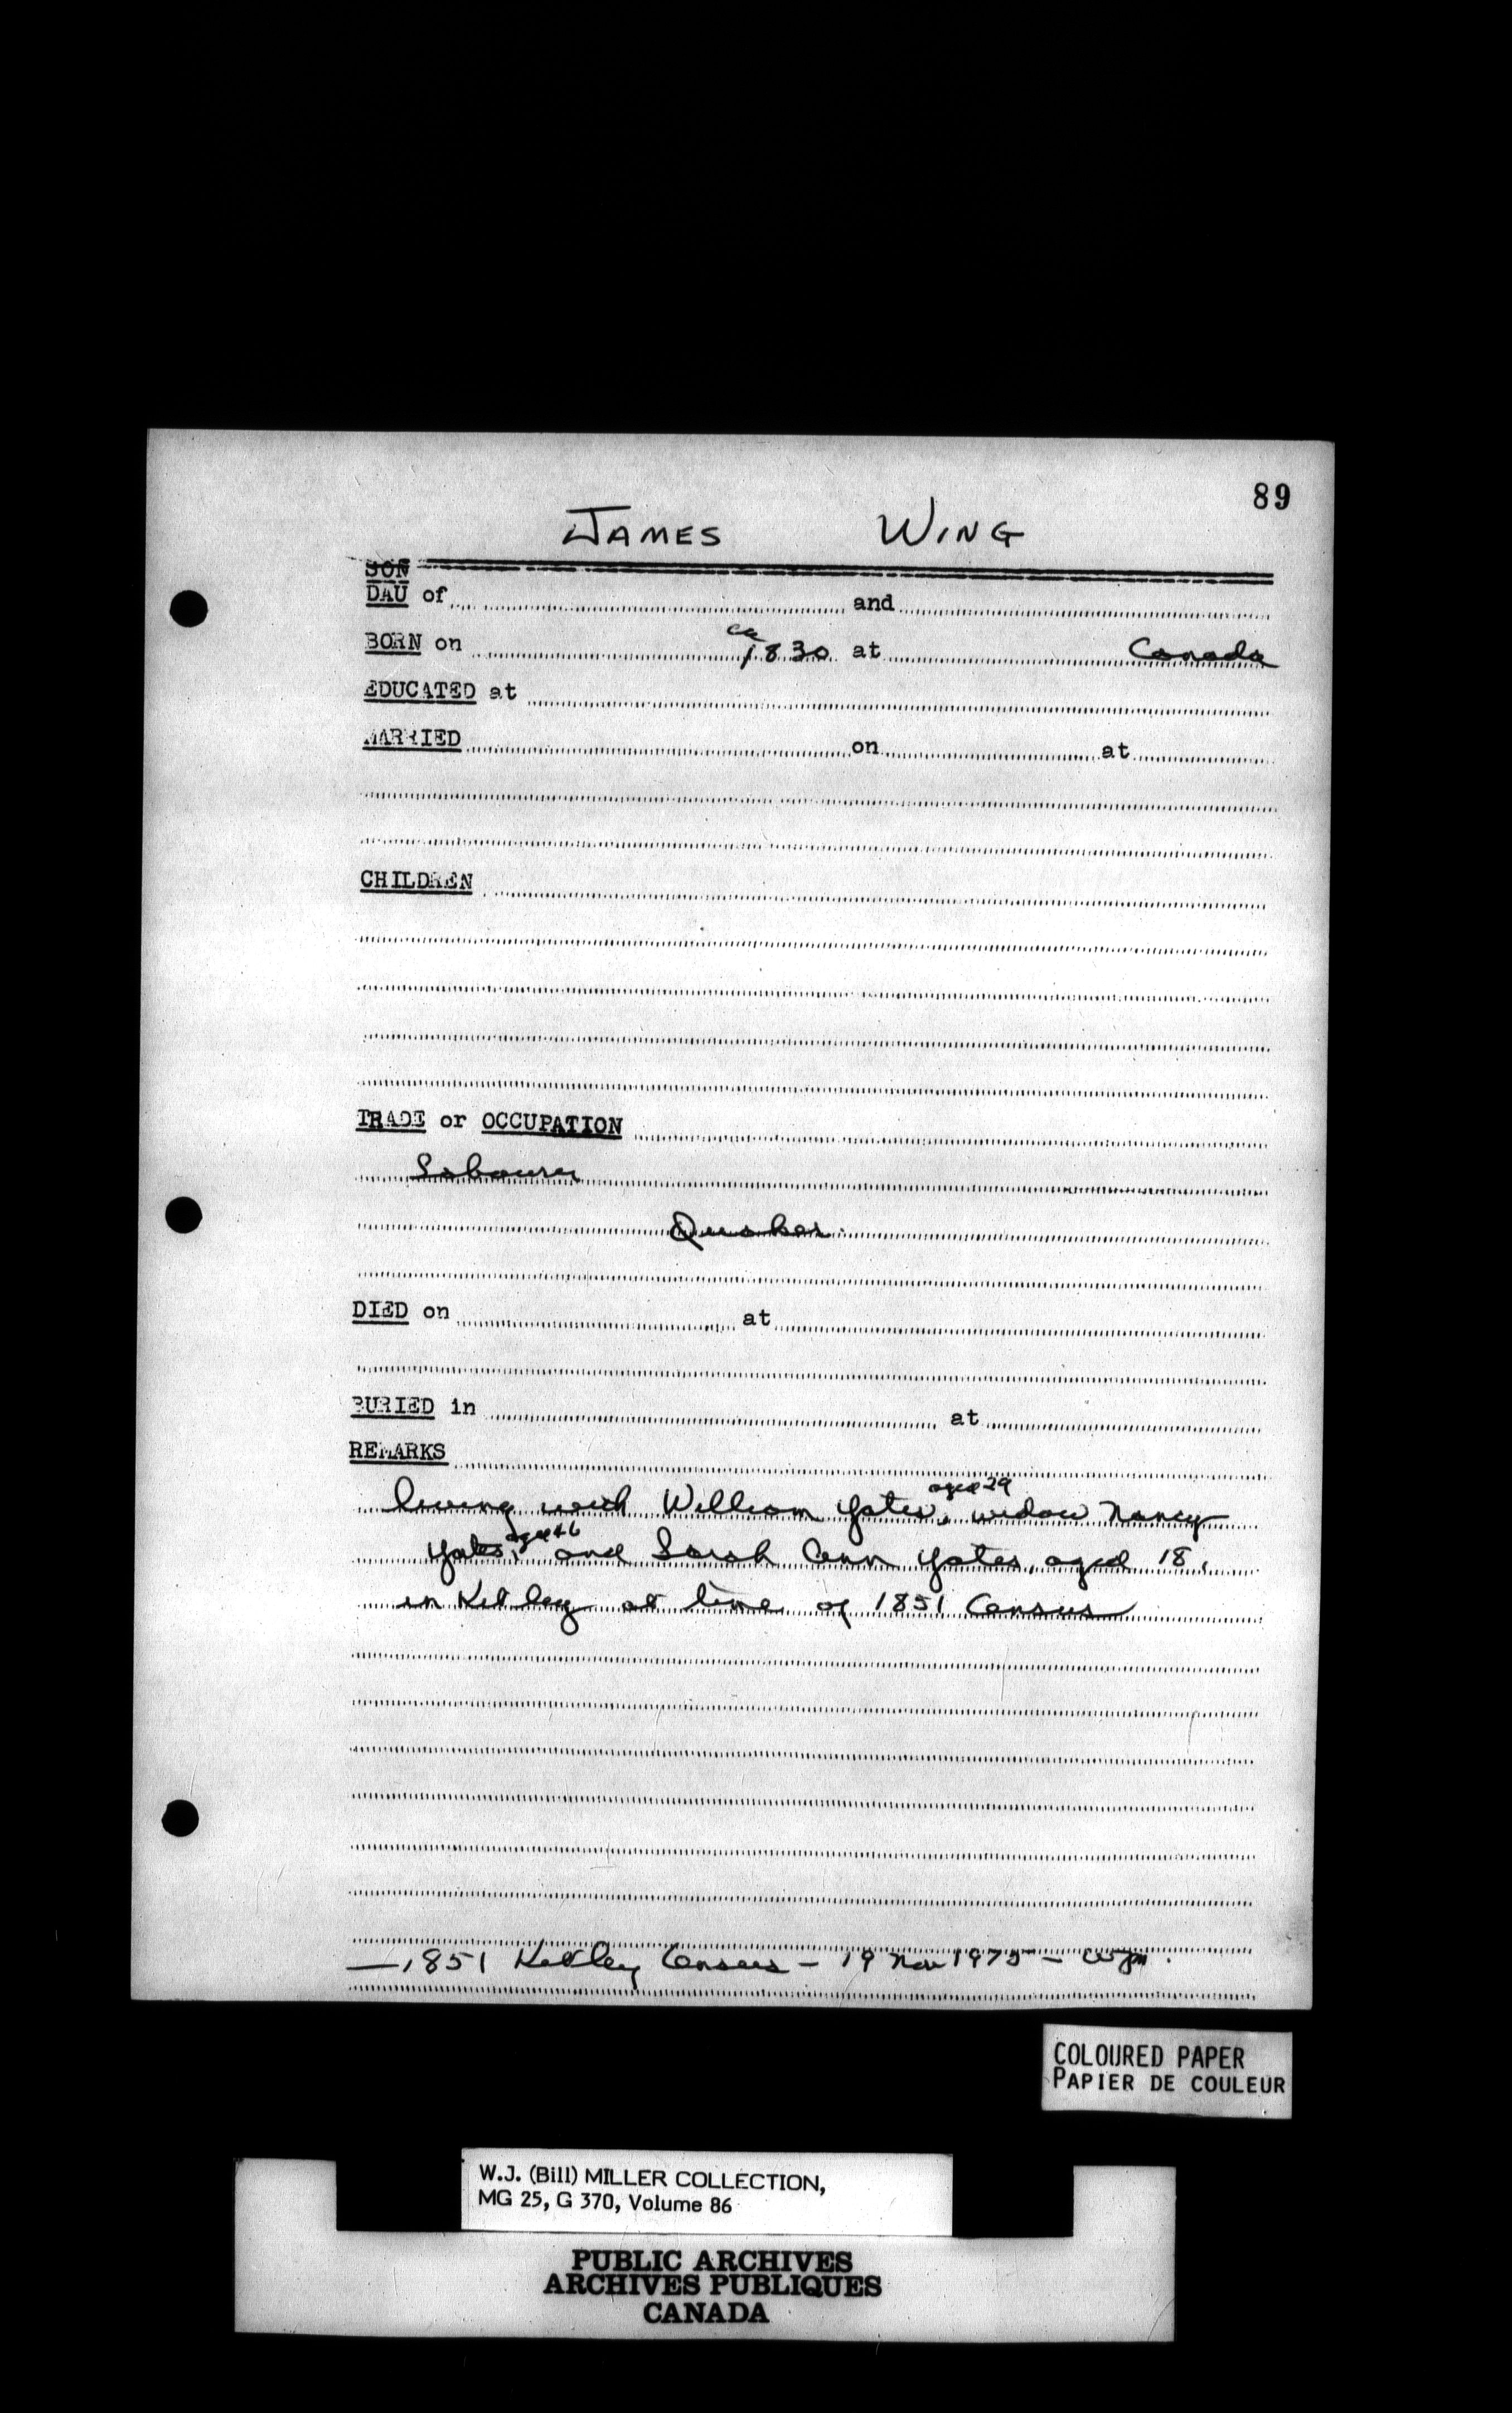 89
JAMES WING
SON
DAU of and
BORN on ca 1830 at Canada
EDUCATED at
MARRIED on at
CHILDREN
TRADE or OCCUPATION
Labourer
Quaker.
DIED on at
BURIED in at
REMARKS
living with William Yates, aged 29, widow Nancy
Yates, aged 46 and Sarah Ann Yates, aged 18,
in Kitley at time of 1851 Census
— 1851 Kitley Census - 19 Nov 1975 - WJM.
COLOURED PAPER
PAPIER DE COULEUR
W.J. (Bill) MILLER COLLECTION,
MG 25, G 370, Volume 86
PUBLIC ARCHIVES
ARCHIVES PUBLIQUES
CANADA